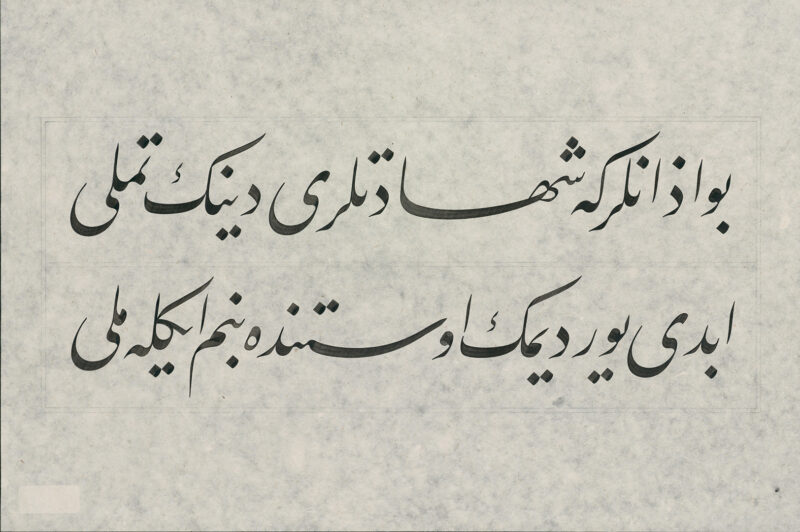 بو اذانلر كه شهادتلرى دينك تملى
ابدى يوردیمك اوستنده بنم ايكله ملى